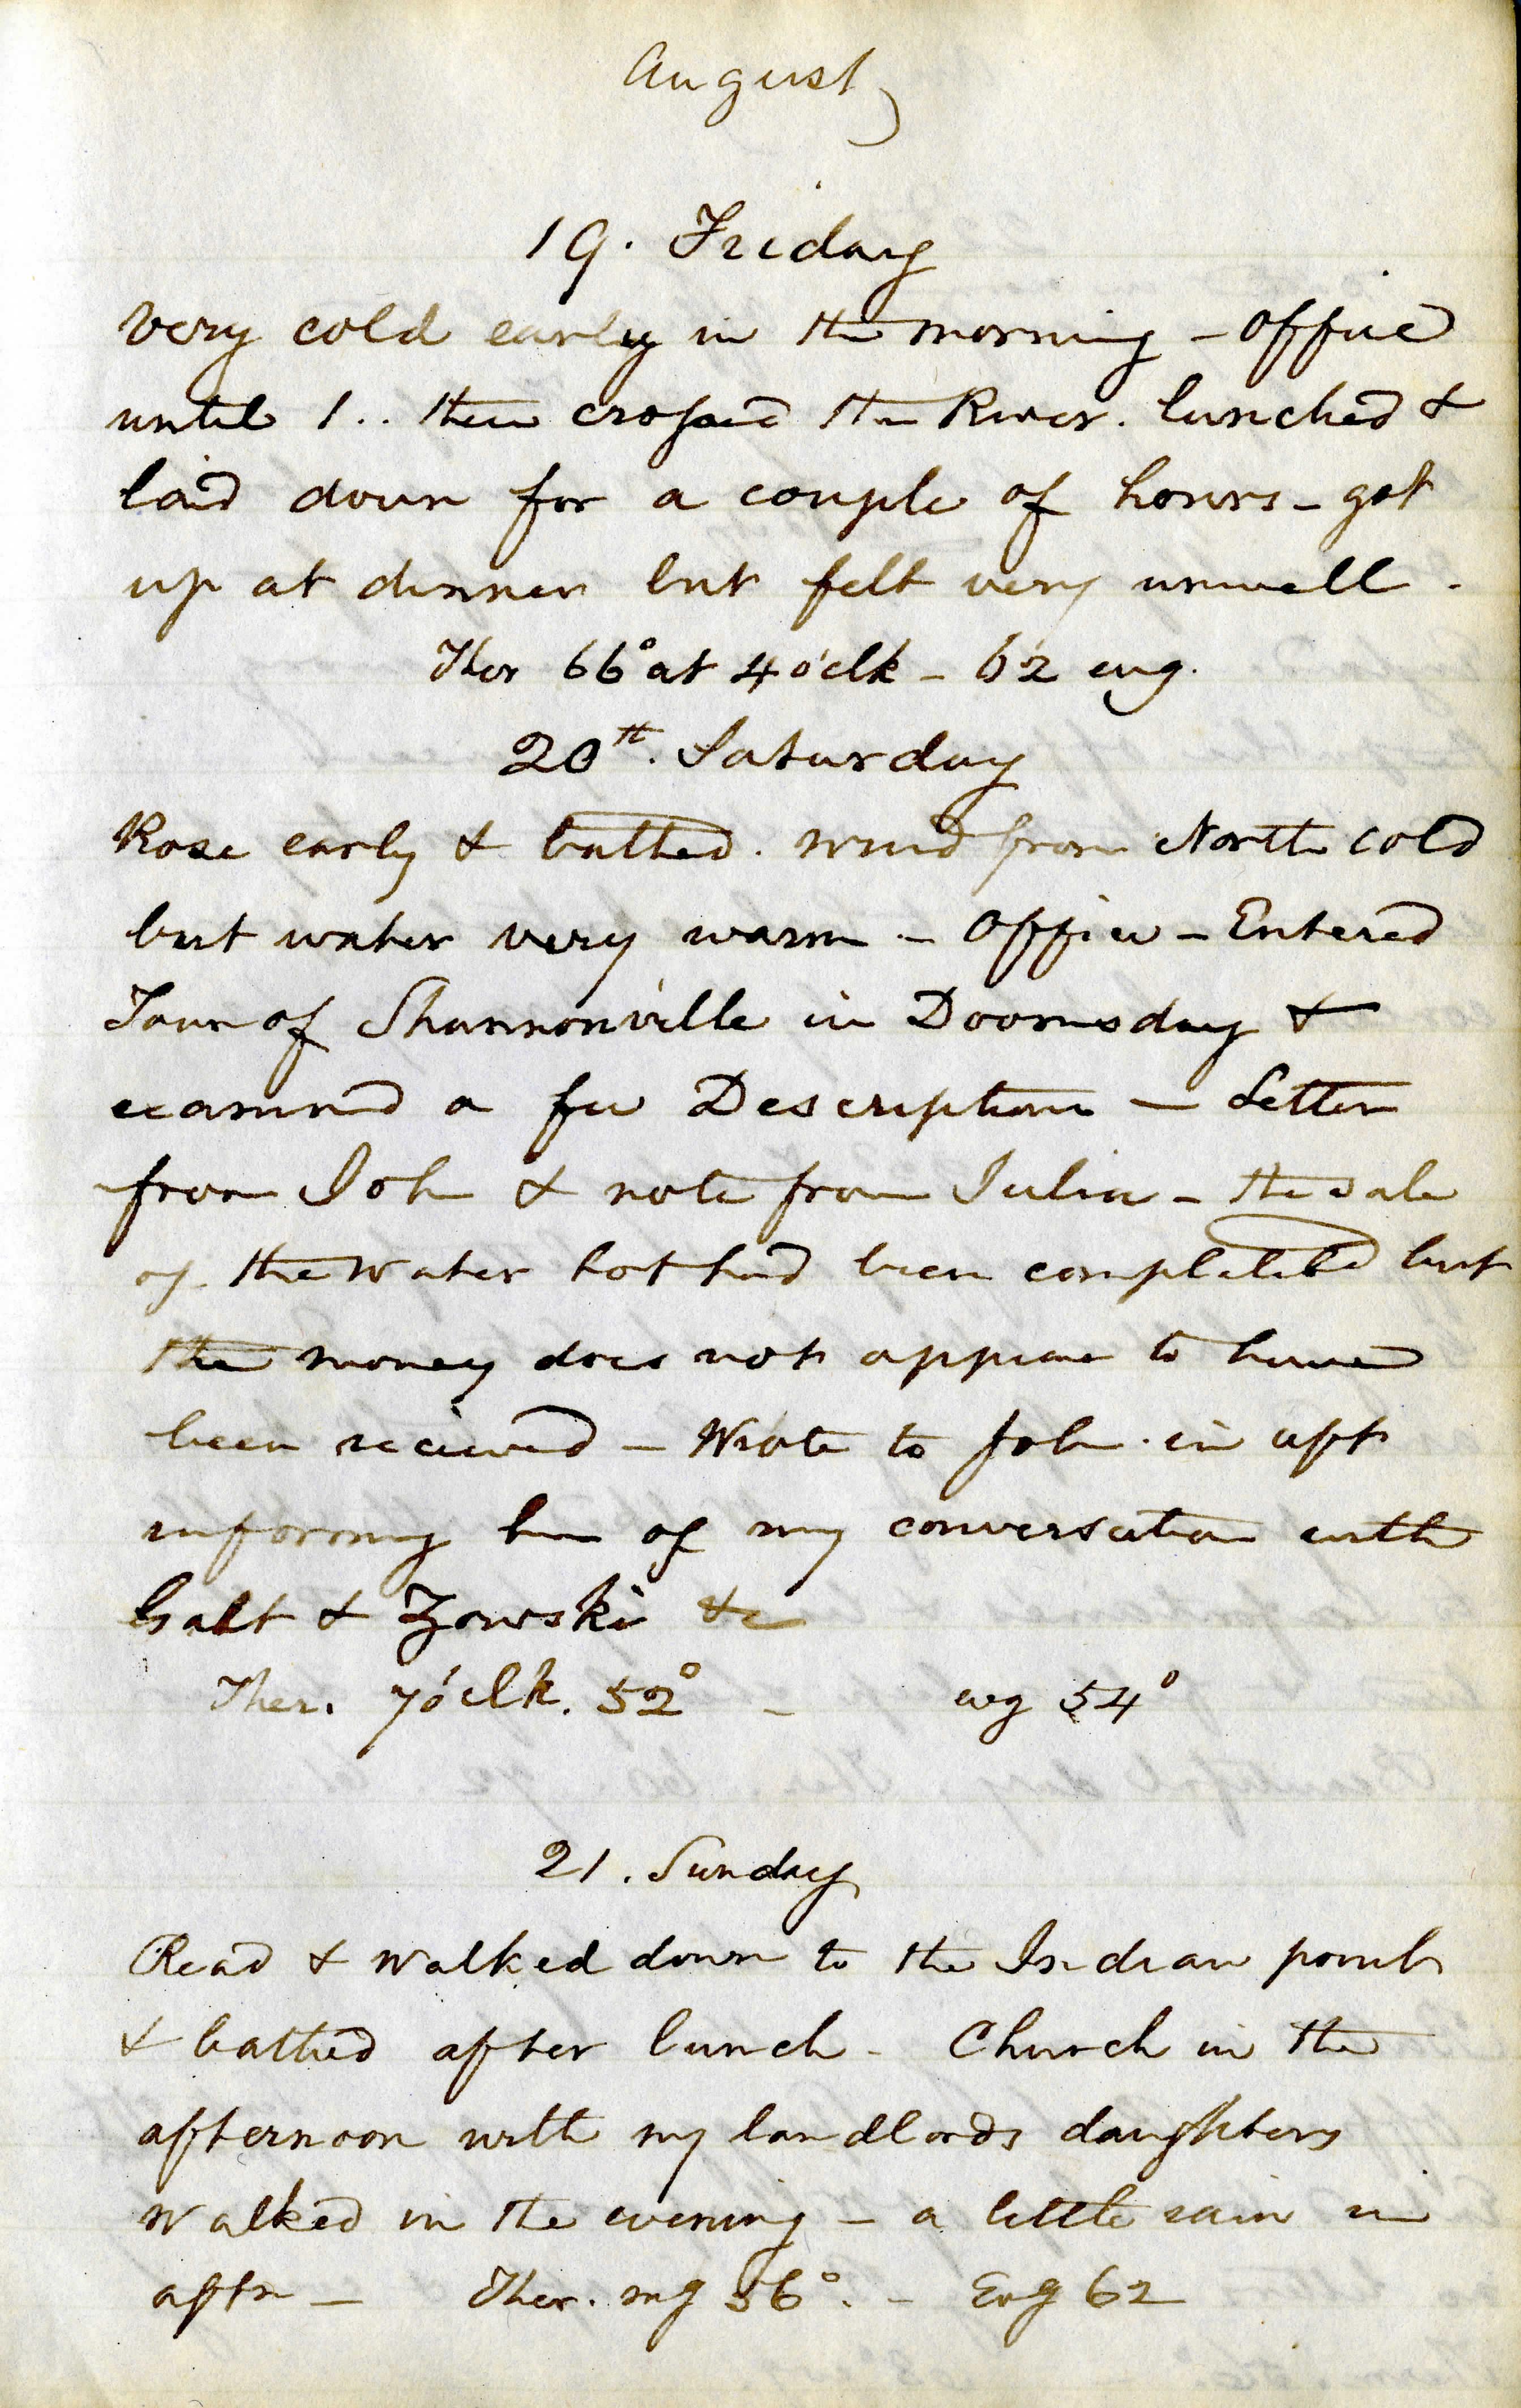 August
19. Friday
Very cold early in the morning - Office
until 1.. then crossed the River. lunched &
laid down for a couple of hours - got
up at dinner but felt very unwell -
Ther 66° at 4 o'clk - 62 evg.
20th. Saturday
Rose early & bathed. wind from North cold
but water very warm - Office - Entered
Town of Shannonville in Doomsday &
examined a few Descriptions - Letter
from Joh & note from Julia - the sale
of the Water lot had been completed but
the money does not appear to have
been recieved - Wrote to Joh. in aft
informing him of my conversation with
Galt & Gzowski &c
Ther. 7 o'clk. 52° - evg 54°
21. Sunday
Read & Walked down to the Indian point
& bathed after lunch - Church in the
afternoon with my landlords daughters
Walked in the evening - a little rain in
aftn - Ther. mg 56°. - Evg 62